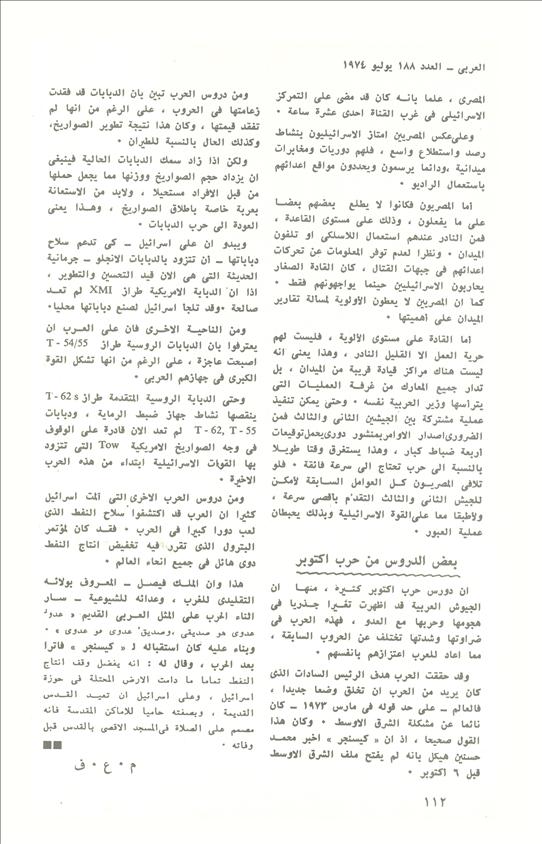 العربي ــ العدد ١٨٨ يوليو ١٩٧٤
المصرى ، علما بانه كان قد مضى على التمركز
الاسرائيلى فى غرب القناة احدى عشرة ساعة ٠
وعلى عكس المصريين امتاز الاسرائيليون بنشاط
رصد واستطلاع واسع ، فلهم دوريات ومخابرات
ميدانية ، ودائما يرسمون ويحددون مواقع اعدائهم
باستعمال الراديو ٠
أما المصريون فكانوا لا يطلع بعضهم بعضا
على ما يفعلون ، وذلك على مستوى القاعدة ،
فمن النادر عندهم استعمال اللاسلكى او تلفون
الميدان ٠ ونظرا لعدم توفر المعلومات عن تحركات
اعدائهم فى جبهات القتال ، كان القادة الصغار
يحاربون الاسرائيليين حينما يواجهونهم فقط ٠
كما ان المصريين لا يعطون الأولوية لمسالة تقارير
الميدان على أهميتها ٠
أما القادة على مستوى الألوية ، فليست لهم
حرية العمل الا القليل النادر ، وهذا يعنى انه
ليست هناك مراكز قيادة قريبة من الميدان ، بل
تدار جميع المعارك من غرفة العمليات التى
يتراسها وزير الحربية نفسه ٠ وحتى يمكن تنفيذ
عملية مشتركة بين الجيشين الثانى والثالث فمن
الضرورى اصدار الاوامر بمنشور دورى يحمل توقيعات
اربعة ضباط كبار ، وهذا يستغرق وقتا طويلا
بالنسبة الى حرب تحتاج الى سرعة فائقة ٠ فلو
تلافى المصريون كل العوامل السابقة لأمكن
للجيش الثانى والثالث التقدم باقصى سرعة ،
ولأطبقا معا على القوة الاسرائيلية وبذلك يحبطان
عملية العبور ٠
بعض الدروس من حرب اكتوبر
ان دورس حرب اكتوبر كثيرة ، منها ان
الجيوش العربية قد اظهرت تغيرا جذريا فى
هجومها وحربها مع العدو ، فهذه الحرب فى
ضراوتها وشدتها تختلف عن الحروب السابقة ،
مما اعاد للعرب اعتزازهم بانفسهم ٠
وقد حققت الحرب هدف الرئيس السادات الذى
كان يريد من الحرب ان تخلق وضعا جديدا ،
فالعالم ــ على حد قوله فى مارس ١٩٧٣ ــ كان
نائما عن مشكلة الشرق الاوسط ٠ وكان هذا
القول صحيحا ، اذ ان « كيسنجر » اخبر محمد
حسنين هيكل بانه لم يفتح ملف الشرق الاوسط
قبل ٦ اكتوبر ٠
ومن دروس الحرب تبين بان الدبابات قد فقدت
زعامتها فى الحروب ، على الرغم من انها لم
تفقد قيمتها ، وكان هذا نتيجة تطوير الصواريخ ،
وكذلك الحال بالنسبة للطيران ٠
ولكن اذا زاد سمك الدبابات الحالية فينبغى
ان يزداد حجم الصواريخ ووزنها مما يجعل حملها
من قبل الافراد مستحيلا ، ولابد من الاستعانة
بعربة خاصة باطلاق الصواريخ ، وهذا يعنى
العودة الى حرب الدبابات ٠
ويبدو ان على اسرائيل ــ كى تدعم سلاح
دباباتها ــ ان تتزود بالدبابات الانجلو ــ جرمانية
الحديثة التى هى الان قيد التحسين والتطوير ،
اذا ان الدبابة الامريكية طراز XMI لم تعد
صالحة ٠ وقد تلجأ اسرائيل لصنع دباباتها محليا ٠
ومن الناحية الاخرى فان على العرب ان
يعترفوا بان الدبابات الروسية طراز T - 54/55
اصبحت عاجزة ، على الرغم من انها تشكل القوة
الكبرى فى جهازهم الحربى ٠
وحتى الدبابة الروسية المتقدمة طراز T - 62 s
ينقصها نشاط جهاز ضبط الرماية ، ودبابات
T - 62, T - 55 لم تعد الان قادرة على الوقوف
فى وجه الصواريخ الامريكية Tow التى تتزود
بها القوات الاسرائيلية ابتداء من هذه الحرب
الاخيرة ٠
ومن دروس الحرب الاخرى التى ألمت اسرائيل
كثيرا ان العرب قد اكتشفوا سلاح النفط الذى
لعب دورا كبيرا فى الحرب ٠ فقد كان لمؤتمر
البترول الذى تقرر فيه تخفيض انتاج النفط
دوى هائل فى جميع انحاء العالم ٠
هذا وان الملك فيصل ــ المعروف بولائه
التقليدى للغرب ، وعدائه للشيوعية ــ سار
اثناء الحرب على المثل العربى القديم « عدو
عدوى هو صديقى ، وصديق عدوى هو عدوى » ٠
وبناء عليه كان استقباله لـ « كيسنجر » فاترا
بعد الحرب ، وقال له : انه يفضل وقف انتاج
النفط تماما ما دامت الارض المحتلة فى حوزة
اسرائيل ، وعلى اسرائيل ان تعيد القدس
القديمة ، وبصفته حاميا للاماكن المقدسة فانه
مصمم على الصلاة فى المسجد الاقصى بالقدس قبل
وفاته ٠
م ٠ ع ٠ ف
١١٢